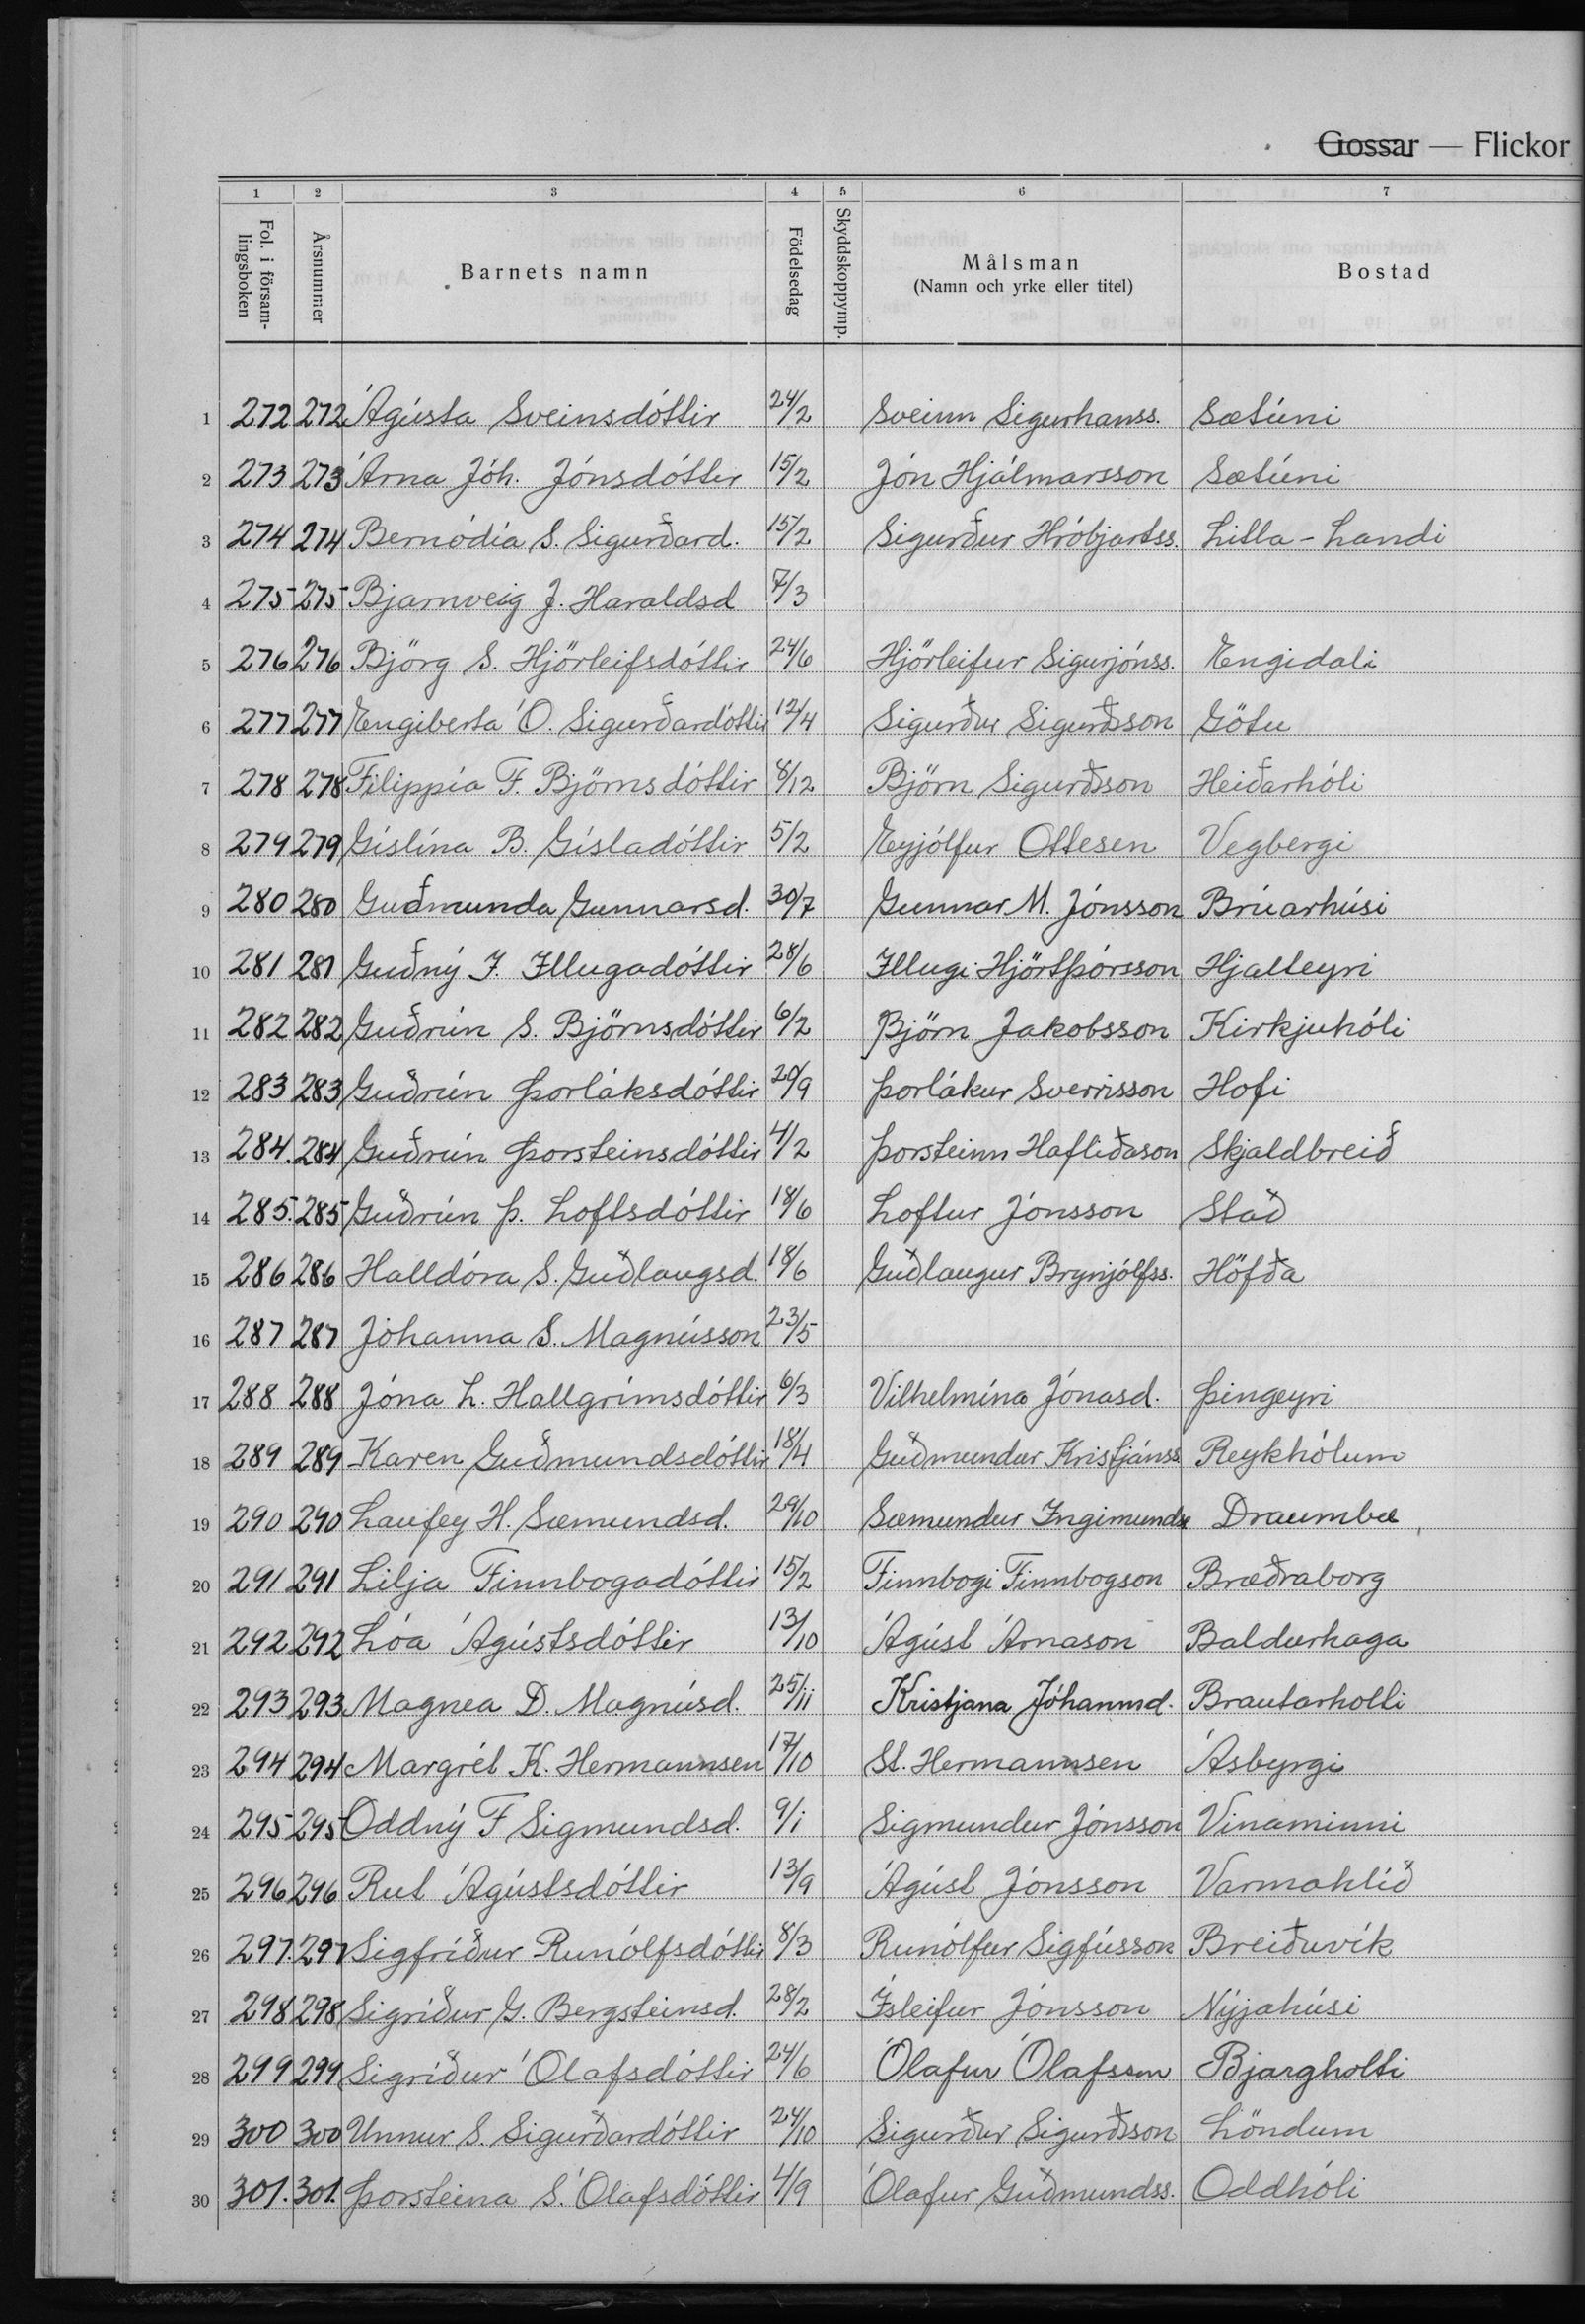 Gossar — Flickor
1 2 3 4 5 6 7
Fol. i försam-lingsboken Årsnummer Barnets namn Födelsedag Skyddskoppymp. Målsman (Namn och yrke eller titel) Bostad
1 272 272 Ágústa Sveinsdóttir 24/2 Sveinn Sigurhanss. Sætúni
2 273 273 Árna Jóh. Jónsdóttir 15/2 Jón Hjálmarsson Sætúni
3 274 274 Bernódía S. Sigurðard. 15/2 Sigurður Hróbjartss. Litla-Landi
4 275 275 Bjarnveig J. Haraldsd 7/3
5 276 276 Björg S. Hjörleifsdóttir 24/6 Hjörleifur Sigurjónss. Engidali
6 277 277 Engiberta Ó. Sigurðardóttir 12/4 Sigurður Sigurðsson Götu
7 278 278 Filippía F. Björnsdóttir 8/12 Björn Sigurðsson Heiðarhóli
8 279 279 Gíslína B. Gísladóttir 5/2 Eyjólfur Ottesen Vegbergi
9 280 280 Guðmunda Gunnarsd. 30/7 Gunnar M. Jónsson Brúarhúsi
10 281 281 Guðný I. Illugadóttir 28/6 Illugi Hjörtþórsson Hjalteyri
11 282 282 Guðrún S. Björnsdóttir 6/2 Björn Jakobsson Kirkjuhóli
12 283 283 Guðrún Þorláksdóttir 20/9 Þorlákur Sverrisson Hofi
13 284. 284 Guðrún Þorsteinsdóttir 4/2 Þorsteinn Hafliðason Skjaldbreið
14 285. 285 Guðrún Þ. Loftsdóttir 18/6 Loftur Jónsson Stað
15 286 286 Halldóra S. Guðlaugsd. 18/6 Guðlaugur Brynjólfss. Höfða
16 287 287 Jóhanna S. Magnússon 23/5
17 288 288 Jóna L. Hallgrímsdóttir 6/3 Vilhelmína Jónasd. Þingeyri
18 289 289 Karen Guðmundsdóttir 18/4 Guðmundur Kristjánss Reykhólum
19 290 290 Laufey H. Sæmundsd. 29/10 Sæmundur Ingimunds Draumbæ
20 291 291 Lilja Finnbogadóttir 15/2 Finnbogi Finnbogson Bræðraborg
21 292 292 Lóa Ágústsdóttir 13/10 Ágúst Árnason Baldurhaga
22 293 293 Magnea D. Magnúsd. 25/11 Kristjana Jóhannsd. Brautarholti
23 294 294 Margrét K. Hermannsen 17/10 St. Hermannsen Ásbyrgi
24 295 295 Oddný F Sigmundsd. 9/1 Sigmundur Jónsson Vinaminni
25 296 296 Rut Ágústsdóttir 13/9 Ágúst Jónsson Varmahlíð
26 297. 297 Sigfríður Runólfsdóttir 8/3 Runólfur Sigfússon Breiðuvík
27 298 298 Sigríður G. Bergsteinsd. 28/2 Ísleifur Jónsson Nýjahúsi
28 299 299 Sigríður Ólafsdóttir 24/6 Ólafur Ólafsson Bjargholti
29 300 300 Unnur S. Sigurðardóttir 24/10 Sigurður Sigurðsson Löndum
30 301. 301. Þorsteina S. Ólafsdóttir 4/9 Ólafur Guðmundss. Oddhóli